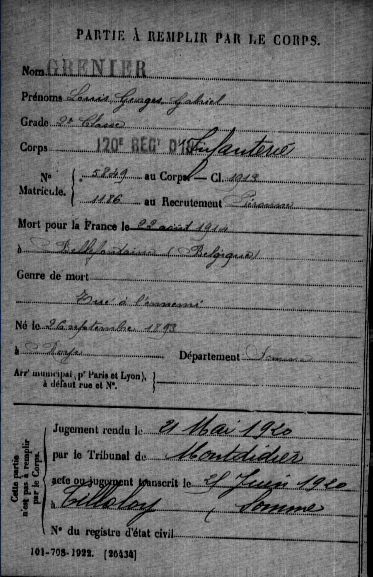 PARTIE À REMPLIR PAR LE CORPS.
Nom GRENIER
Prénoms Louis Georges Gabriel
Grade 2e Classe
Corps 120e REGt D'Infanterie
No Matricule. { 5849 au Corps. — Cl. 1913
1186 au Recrutement Péronne
Mort pour la France le 22 août 1914
à Bellefontaine (Belgique)
Genre de mort
Tué à l'ennemi
Né le 26 septembre 1893
à Département Somme
Arrt municipal (pr Paris et Lyon), à défaut rue et No.
Cette partie n'est pas à remplir par le Corps.
Jugement rendu le 21 Mai 1920
par le Tribunal de Montdidier
acte ou jugement transcrit le Juin 1920
à Tilloloy (Somme
No du registre d'état civil
101-708-1922. [26434]